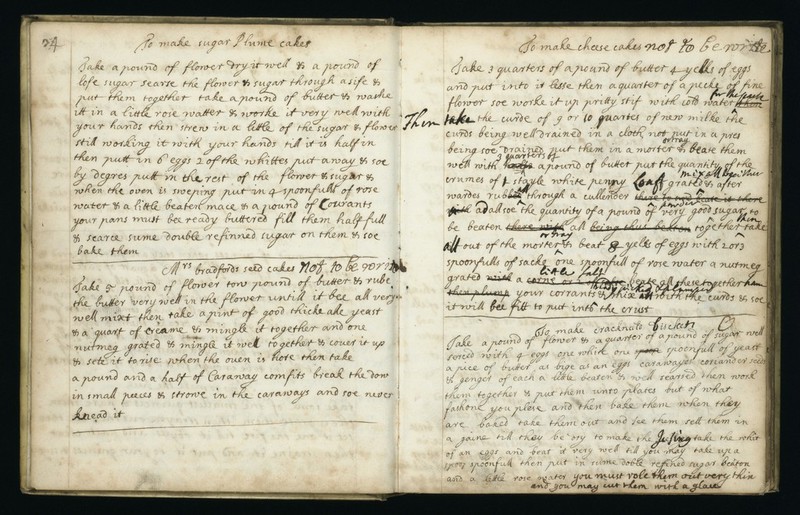 24
To make sugar Plume cakes
Take a pound of flower dry it well & a pound of
lofe sugar searse the flower & sugar through a sife &
put them together take a pound of butter & washe
itt in a little rose watter & worke it very well with
your hands then strew in a little of the sugar & flower
still working it with your hands till it is half in
then putt in 6 eggs 2 of the whittes put away & soe
by degres putt in the rest of the flower & sugar &
when the oven is sweping put in 4 spoonfulls of rose
water & a little beaten mace & a pound of Courants
your pans must bee ready buttered fill them half full
& searce sume double refinned sugar on them & soe
bake them
Mrs bradfords seed cakes not to be
Take 5 pound of flower tow pound of butter & rube
the butter very well in the flower untill it bee all very
well mixt then take a pint of good thicke ale yeast
& a quart of creame & mingle it together and one
nutmeg grated & mingle it well together & couer it up
& sete it to rise when the oven is hote then take
a pound and a half of Caraway comfits break the dow
in small peeces & strowe in the caraways and soe never
knead it
To make cheese cakes not to be
Take 3 quarters of a pound of butter 4 yelks of eggs
and put into it lesse then a quarter of a pecke of fine
flower soe worke it up pretty stif with cold water for the paste
Then take the curde of 9 or 10 quartes of new milke the
curds being well drained in a cloth not put in a pres
being soe drained put them in a morter or tray & beate them
well with 3 quarters of a pound of butter put the quantity of the
crumes of 1 stayle white penny loafe grated & after
wardes rub all through a cullender
add allsoe the quantity of a pound of very good sugar to
be beaten all together then take
all out of the morter or tray & beat 8 yelks of eggs with 2 or 3
spoonfulls of sacke one spoonfull of rose water a nutmeg
grated a little salt beate all these together
your corrants & mixe with the curds & soe
it will bee fitt to put into the crust
To make cracknite bisckets
Take a pound of flower & a quarter of a pound of sugar well
with 4 eggs one white one spoonfull of yeast
a piece of buter as bige as an egg carawayes coriander seeds
& ginger of each a little beaten & well searsed then work
them together & put them unto plates cut of what
fashone you please and then bake them when they
are baked take them out and sett them in
a till they be dry to make the Jeling take the white
of an egg and beat it very well till you may take up a
spoonfull then put in sume doble refined sugar beaten
and a little rose water you must role them out very thin
and you may cut them with a glass